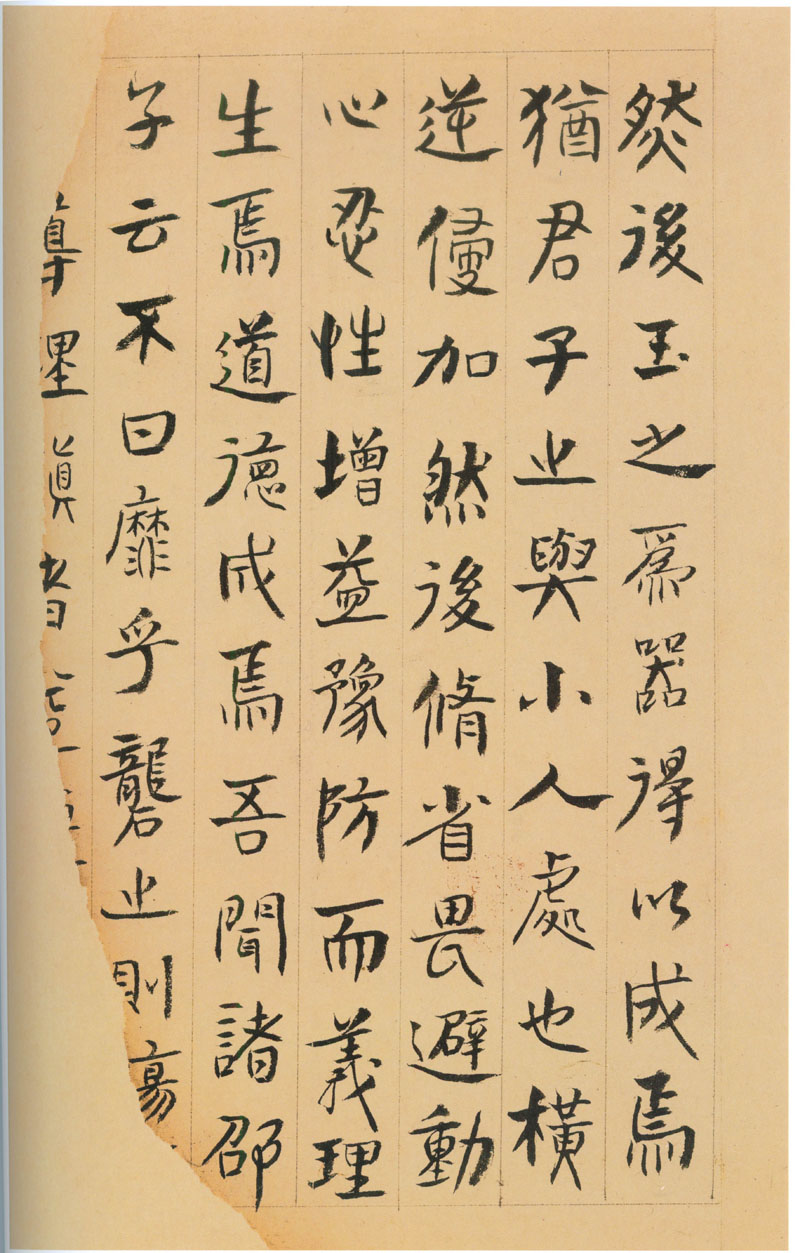 然後玉之爲器得以成焉
猶君子之與小人處也橫
逆侵加然後脩省畏避動
心忍性增益豫防而義理
生焉道德成焉吾聞諸邵
子云不曰靡乎礱之則